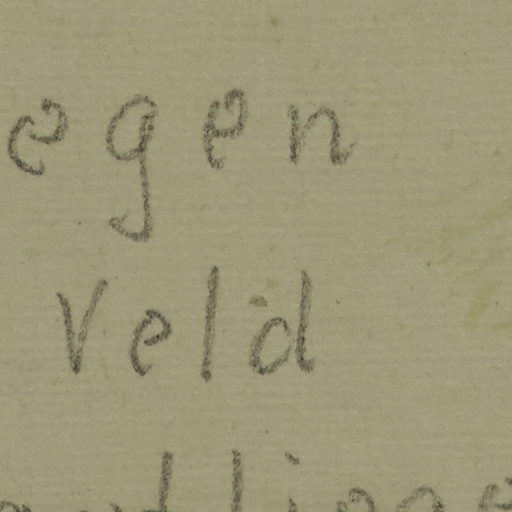 egen
veld